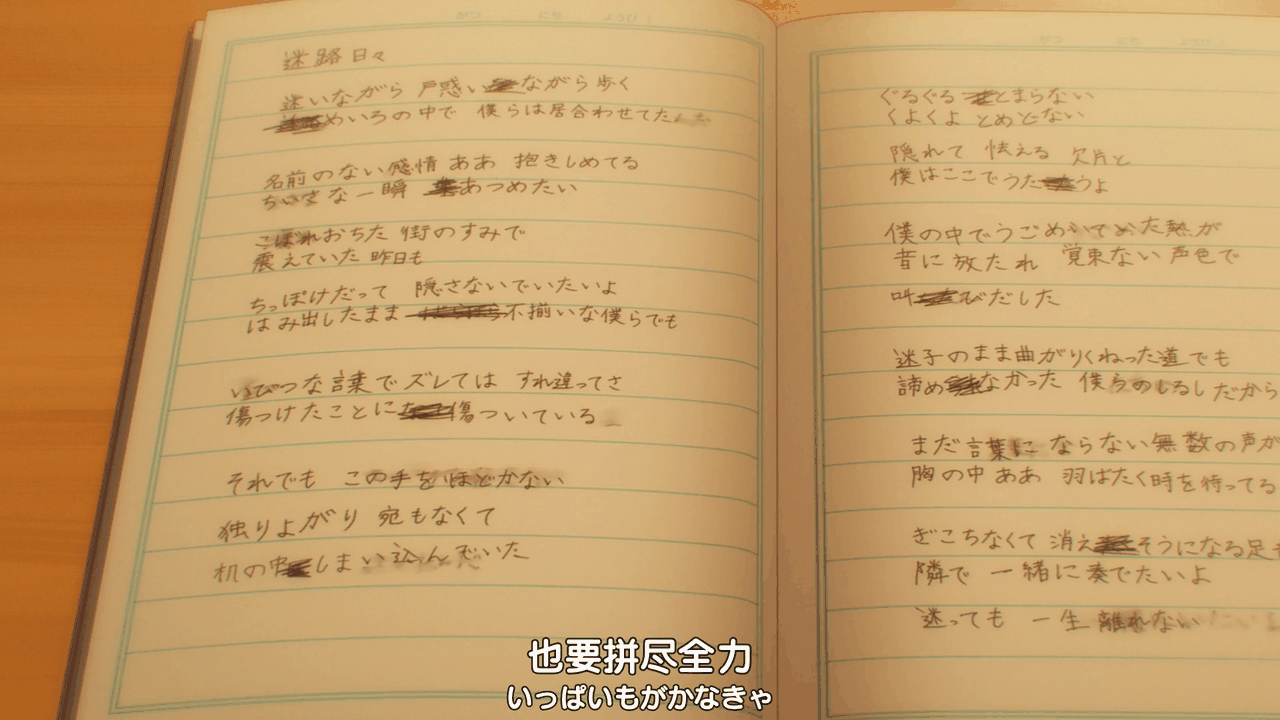 がつ にち ようび
迷路日々
迷いながら 戸惑いながら歩く
めいろの中で 僕らは居合わせてた
名前のない感情 ああ 抱きしめてる
ちいさな一瞬 あつめたい
こぼれおちた 街のすみで
震えていた 昨日も
ちっぽけだって 隠さないでいたいよ
はみ出したまま ばらばら不揃いな僕らでも
いびつな言葉でズレては すれ違ってさ
傷つけたことに傷ついている
それでも この手をほどかない
独りよがり 宛もなくて
机の中しまい込んでいた
がつ にち ようび
ぐるぐる とまらない
くよくよ とめどない
隠れて 怯える 欠片と
僕はここでうたうよ
僕の中でうごめいてめた熱が
音に放たれ 覚束ない声色で
叫びだした
迷子のまま曲がりくねった道でも
諦めなかった 僕らのしるしだから
まだ言葉に ならない無数の声が
胸の中ああ 羽ばたく時を待ってる
ぎこちなくて 消えそうになる足
隣で 一緒に奏でたいよ
迷っても 一生 離れない
也要拼尽全力
いっぱいもがかなきゃ